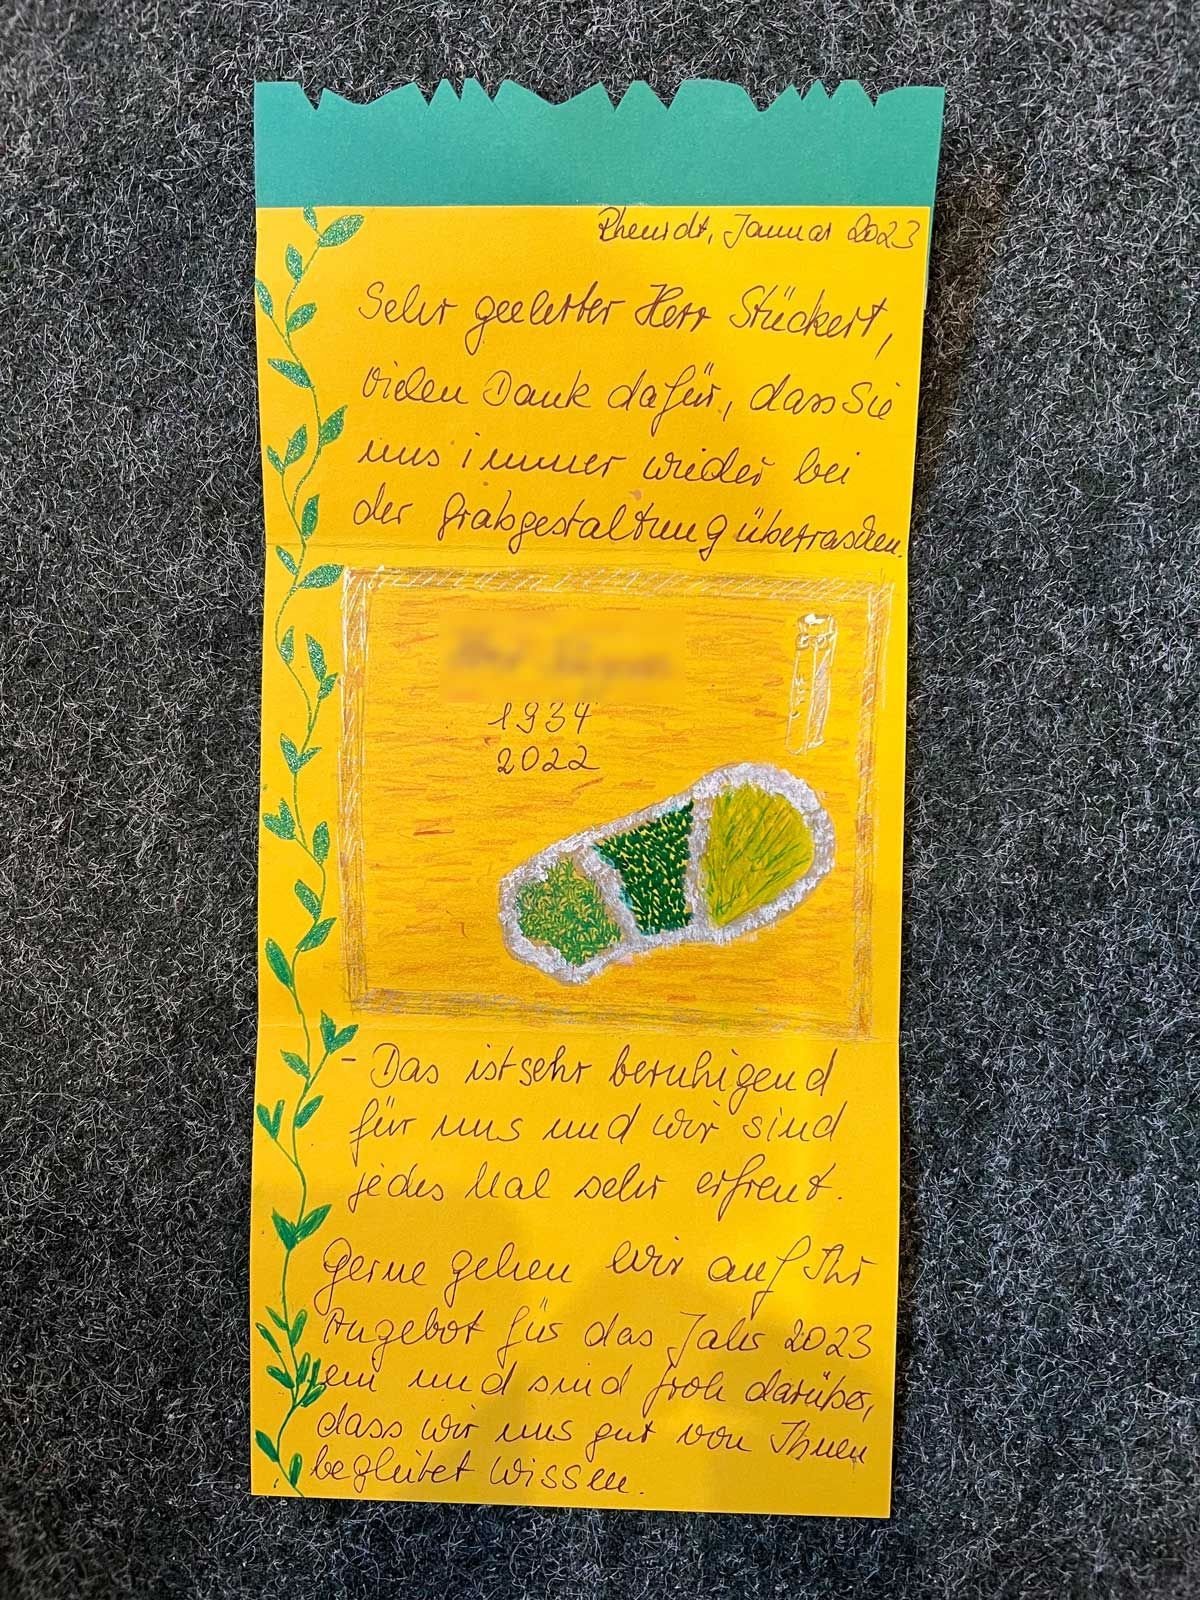 Rheurdt, Januar 2023
Sehr geehrter Herr Stückert,
vielen Dank dafür, dass Sie
uns immer wieder bei
der Grabgestaltung überraschen.
1934
2022
- Das ist sehr beruhigend
für uns und wir sind
jedes Mal sehr erfreut.
Gerne gehen wir auf Ihr
Angebot für das Jahr 2023
ein und sind froh darüber,
dass wir uns gut von Ihnen
begleitet wissen.